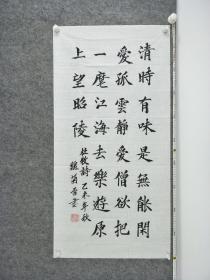 清時有味是無能閑
愛孤雲靜愛僧欲把
一麾江海去樂遊原
上望昭陵
杜牧詩乙未年秋
魏
書